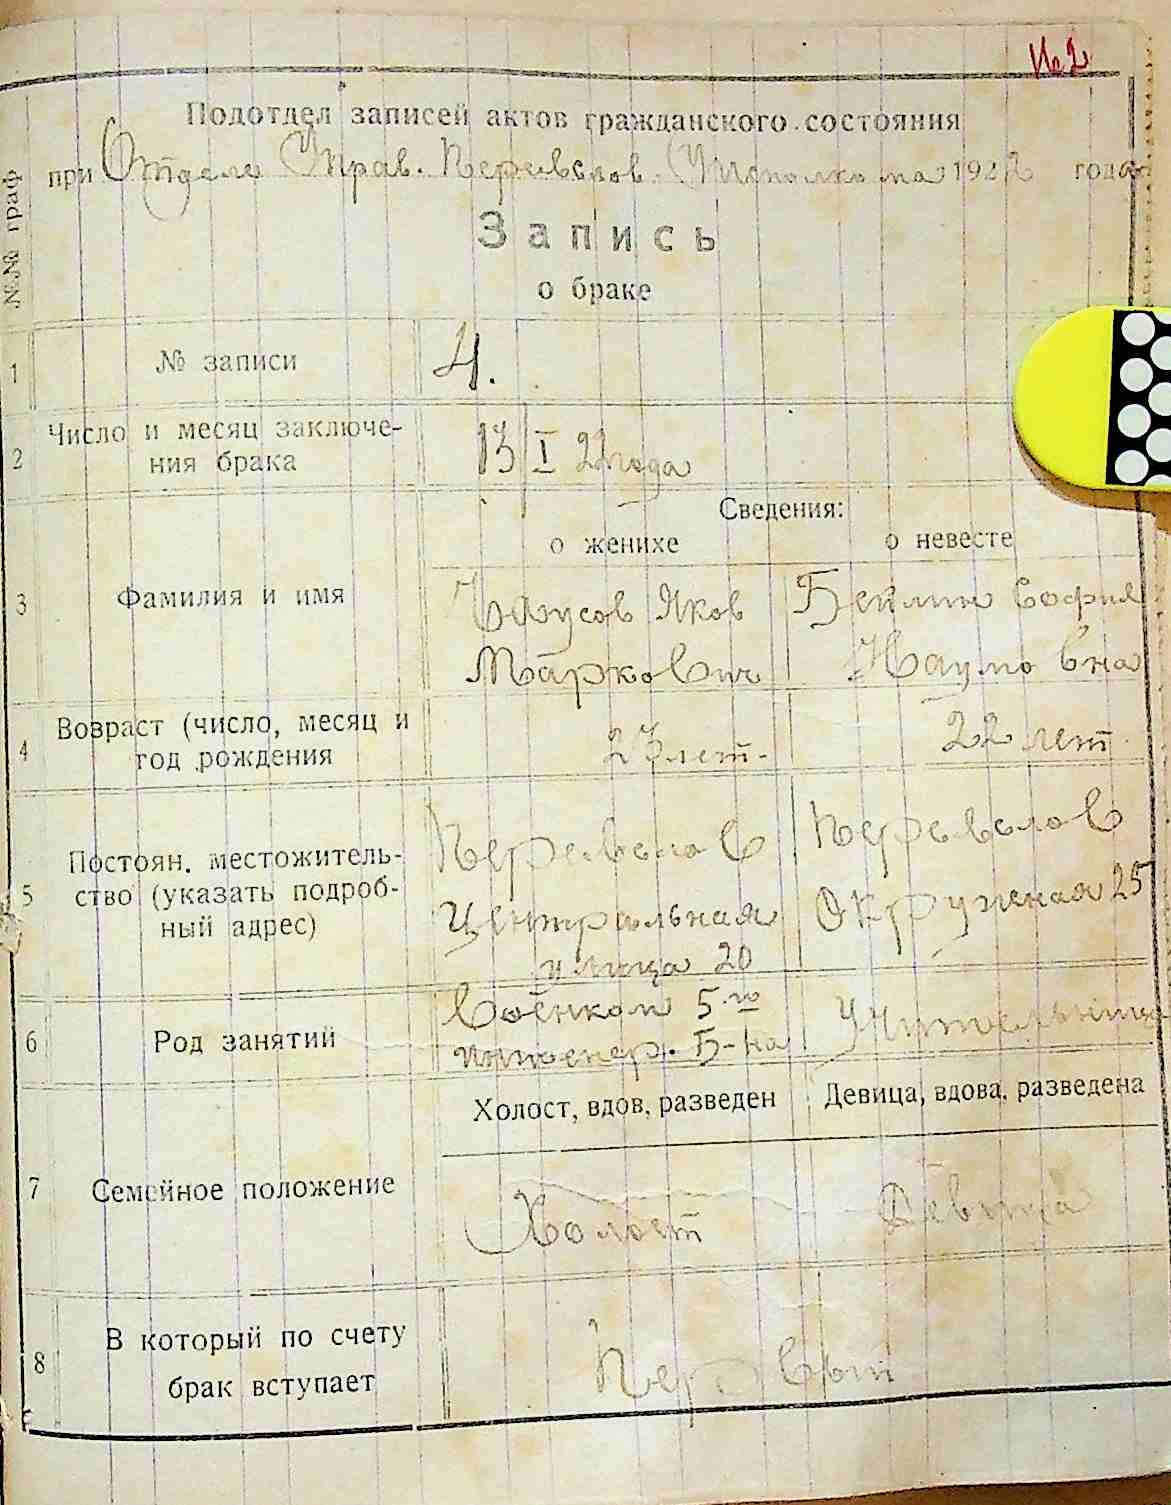 № 2
Подотдел записей актов гражданского состояния
при Отделе Управ. Исполкома 1922 года
№№ граф
Запись
о браке
1 № записи 4.
2 Число и месяц заключе-
ния брака 13 I 22 года
Сведения:
о женихе о невесте
3 Фамилия и имя
Яков София
Маркович Наумовна
4 Возраст (число, месяц и
год рождения
лет. 22 лет.
5 Постоян. местожитель-
ство (указать подроб-
ный адрес)
Центральная Окружная 25
улица 20
6 Род занятий
Военком 5-го Учительница
инженер. Б-на
Холост, вдов, разведен Девица, вдова, разведена
7 Семейное положение
Холост Девица
8 В который по счету
брак вступает
Первый